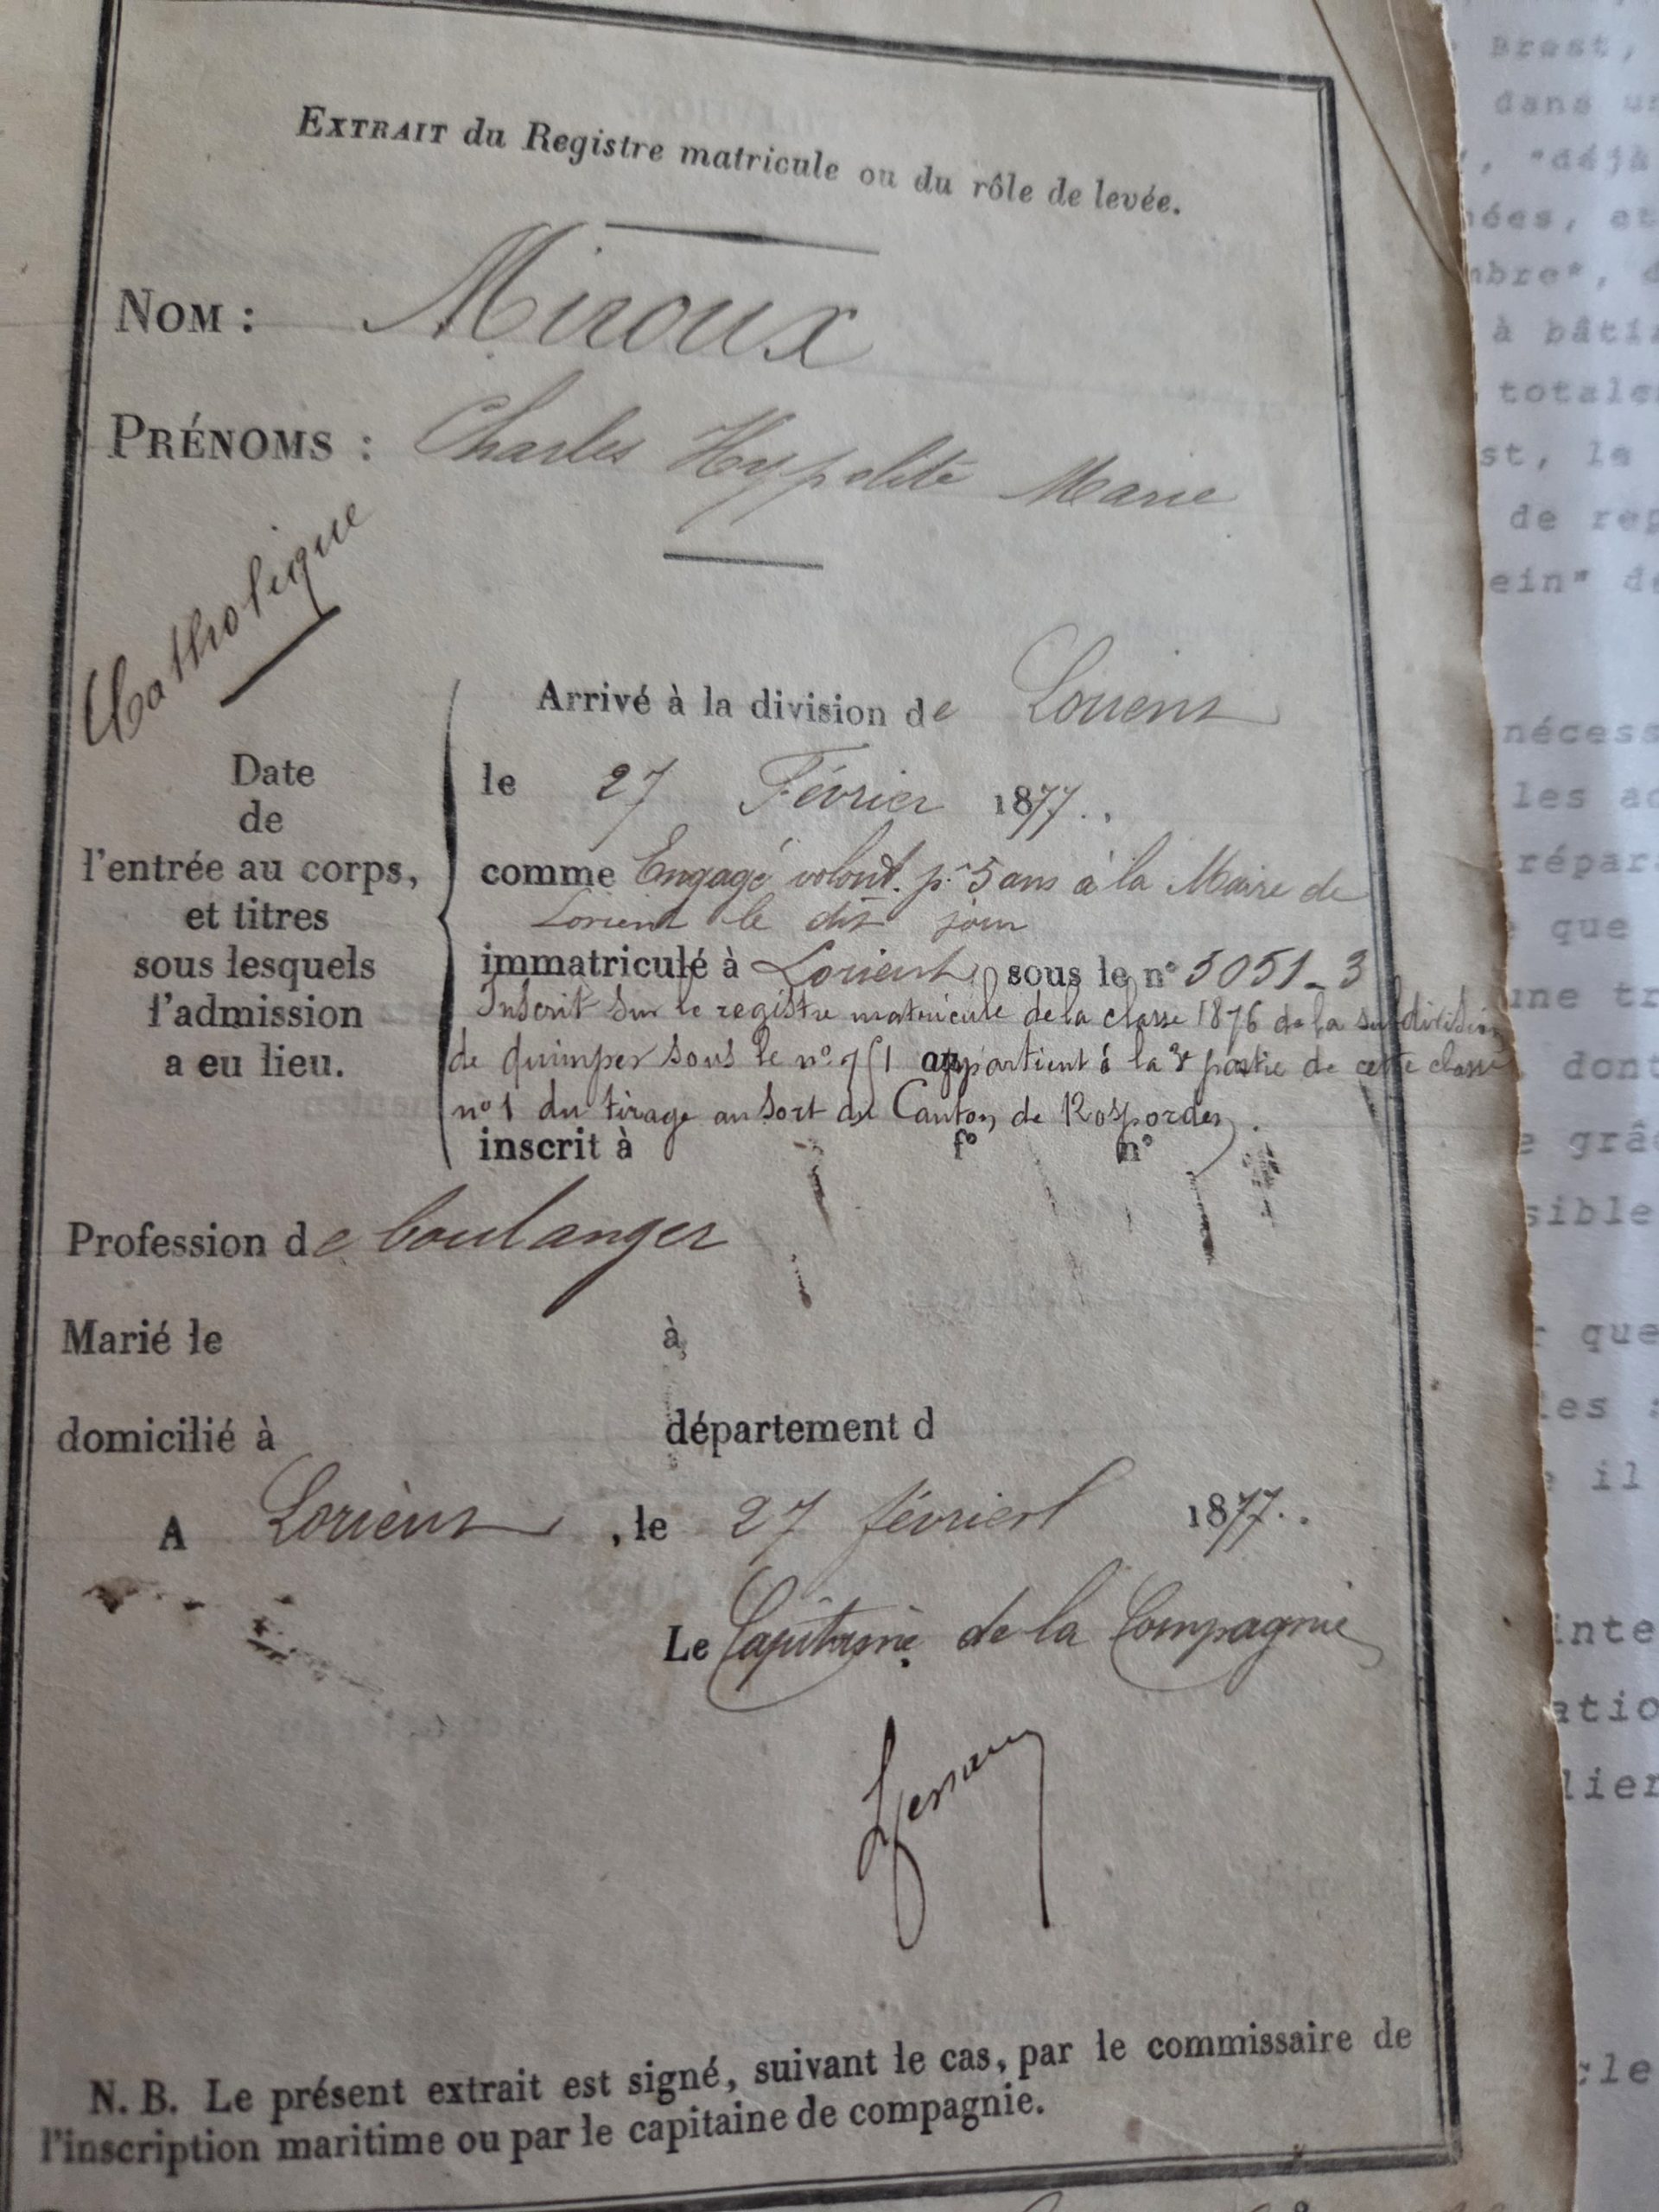 EXTRAIT du Registre matricule ou du rôle de levée.
NOM : Miroux
PRÉNOMS : Charles Hypolite Marie
Catholique
Date
de
l'entrée au corps,
et titres
sous lesquels
l'admission
a eu lieu.
Arrivé à la division de Lorient
le 27 Février 1877.
comme Engagé volont. pr 5 ans à la Mairie de
Lorient le dit jour
immatriculé à Lorient sous le n° 5051-3
Inscrit sur le registre matricule de la classe 1876 de la subdivision
de quimper sous le n° appartient à la partie de cette classe
n° 1 du tirage au sort du Canton de Rosporden.
inscrit à f° n°
Profession de boulanger
Marié le à
domicilié à département d
A Lorient, le 27 février 1877.
Le Capitaine de la Compagnie
N. B. Le présent extrait est signé, suivant le cas, par le commissaire de
l'inscription maritime ou par le capitaine de compagnie.
Brest,
dans
"déjà
à
de
nécess
les
que
dont
que
il